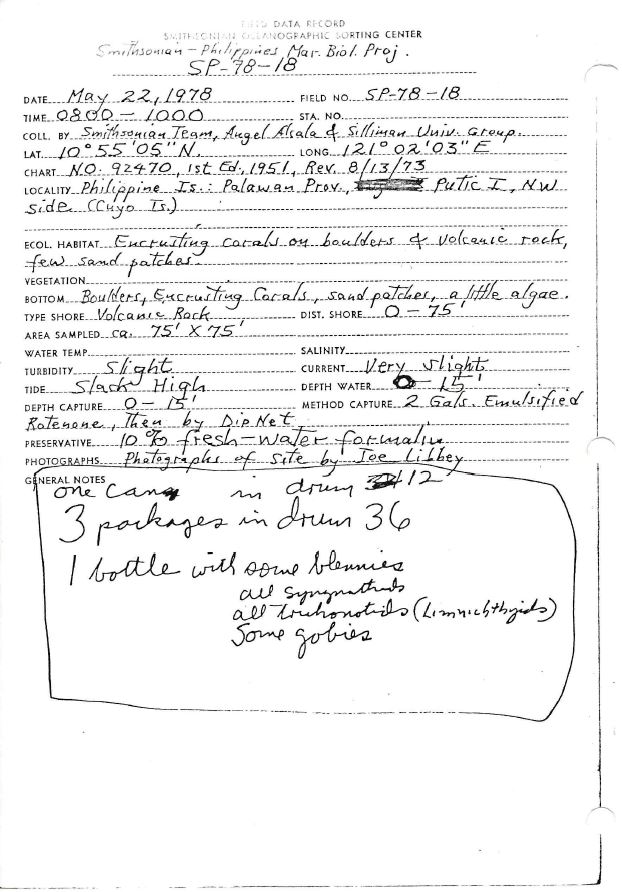 FIELD DATA RECORD
SMITHSONIAN OCEANOGRAPHIC SORTING CENTER
Smithsonian - Philippines Mar. Biol. Proj.
SP-78-18
DATE May 22, 1978 FIELD NO. SP-78-18
TIME 0800 - 1000 STA. NO.
COLL. BY Smithsonian Team, Angel Alcala & Silliman Univ. Group.
LAT. 10° 55' 05" N. LONG. 121° 02' 03" E
CHART NO. 92470, 1st Ed, 1951, Rev. 8/13/73
LOCALITY Philippine Is.: Palawan Prov., Putic I, NW
side (Cuyo Is.)
ECOL. HABITAT Encrusting corals on boulders & volcanic rock,
few sand patches
VEGETATION
BOTTOM Boulders, Encrusting Corals, sand patches, a little algae.
TYPE SHORE Volcanic Rock DIST. SHORE 0 - 75'
AREA SAMPLED ca. 75' X 75'
WATER TEMP. SALINITY
TURBIDITY Slight CURRENT Very slight
TIDE Slack High DEPTH WATER 0 - 15'
DEPTH CAPTURE 0 - 15' METHOD CAPTURE 2 Gals. Emulsified
Rotenone, Then by Dip Net
PRESERVATIVE 10% fresh-water formalin
PHOTOGRAPHS Photographs of Site by Joe Libbey
GENERAL NOTES
one can in drum 12
3 packages in drum 36
1 bottle with some blennies
all syngnathids
all trichonotids (Limnichthyids)
Some gobies